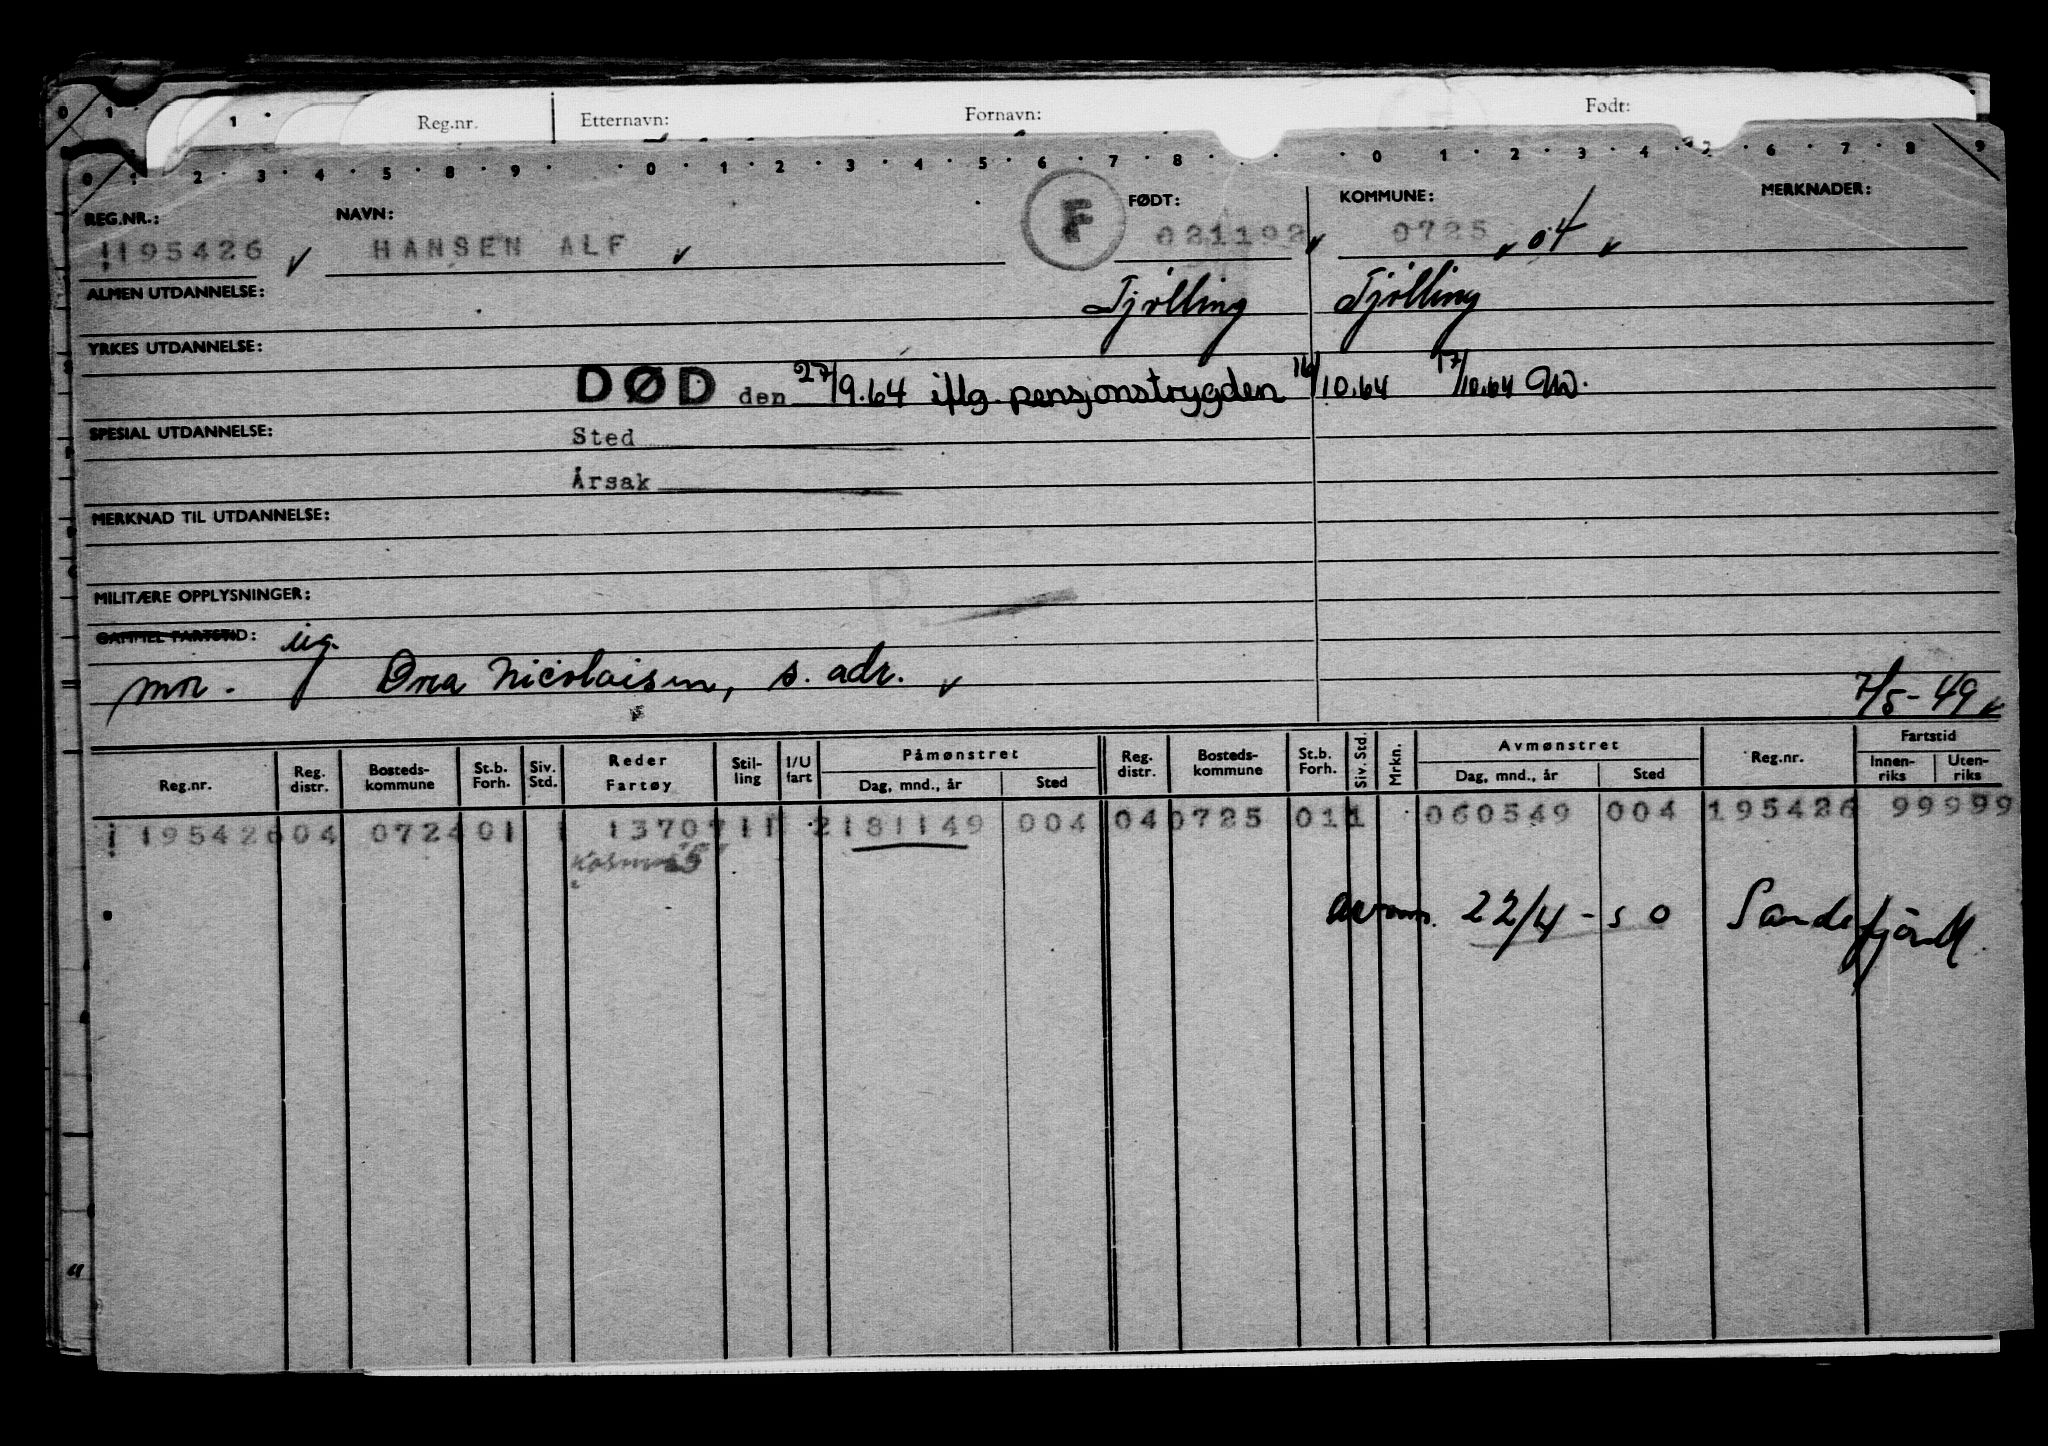 Reg.nr. Etternavn: Fornavn: Født:
0 1 2 3 4 5 6 7 8 9 0 1 2 3 4 5 6 7 8 0 1 2 3 4 5 6 7 8 9
REG.NR.: NAVN: F FØDT: KOMMUNE: MERKNADER:
195426 HANSEN ALF 021192 0725 04
ALMEN UTDANNELSE: Tjølling Tjølling
YRKES UTDANNELSE:
DØD den 27/9.64 iflg. pensjonstrygden 16/10.64 17/10.64
SPESIAL UTDANNELSE: Sted
Årsak
MERKNAD TIL UTDANNELSE:
MILITÆRE OPPLYSNINGER:
GAMMEL FARTSTID: ug.
mor. Nicolaisen, s. adr. 7/5-49
Reg.nr. Reg. distr. Bosteds-kommune St.b. Forh. Siv. Std. Reder Fartøy Stil-ling I/U fart Påmønstret Dag, mnd., år Sted Reg. distr. Bosteds-kommune St.b. Forh. Siv. Std. Mrkn. Avmønstret Dag, mnd., år Sted Reg.nr. Fartstid Innen-riks Uten-riks
195426 04 0724 01 1 13707 11 2 181149 004 04 0725 01 1 1 060549 004 195426 99999
Kosmos 5
avm. 22/4-50 Sandefjord